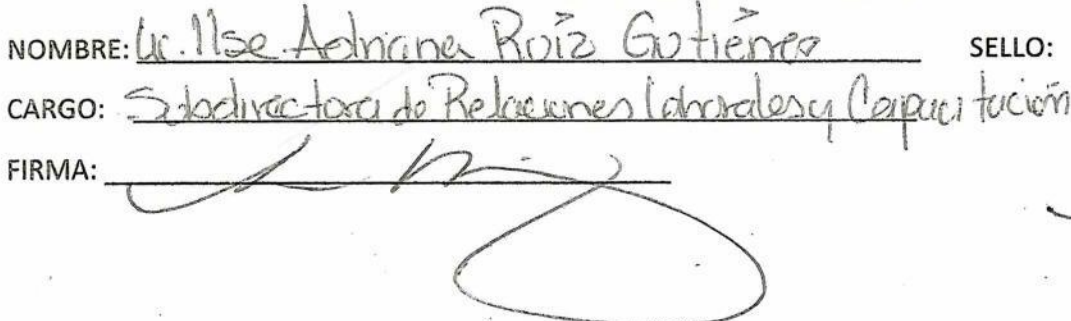 NOMBRE: Lic. Ilse Adriana Ruíz Gutiérrez SELLO:
CARGO: Subdirectora de Relaciones Laborales y Capacitación
FIRMA: